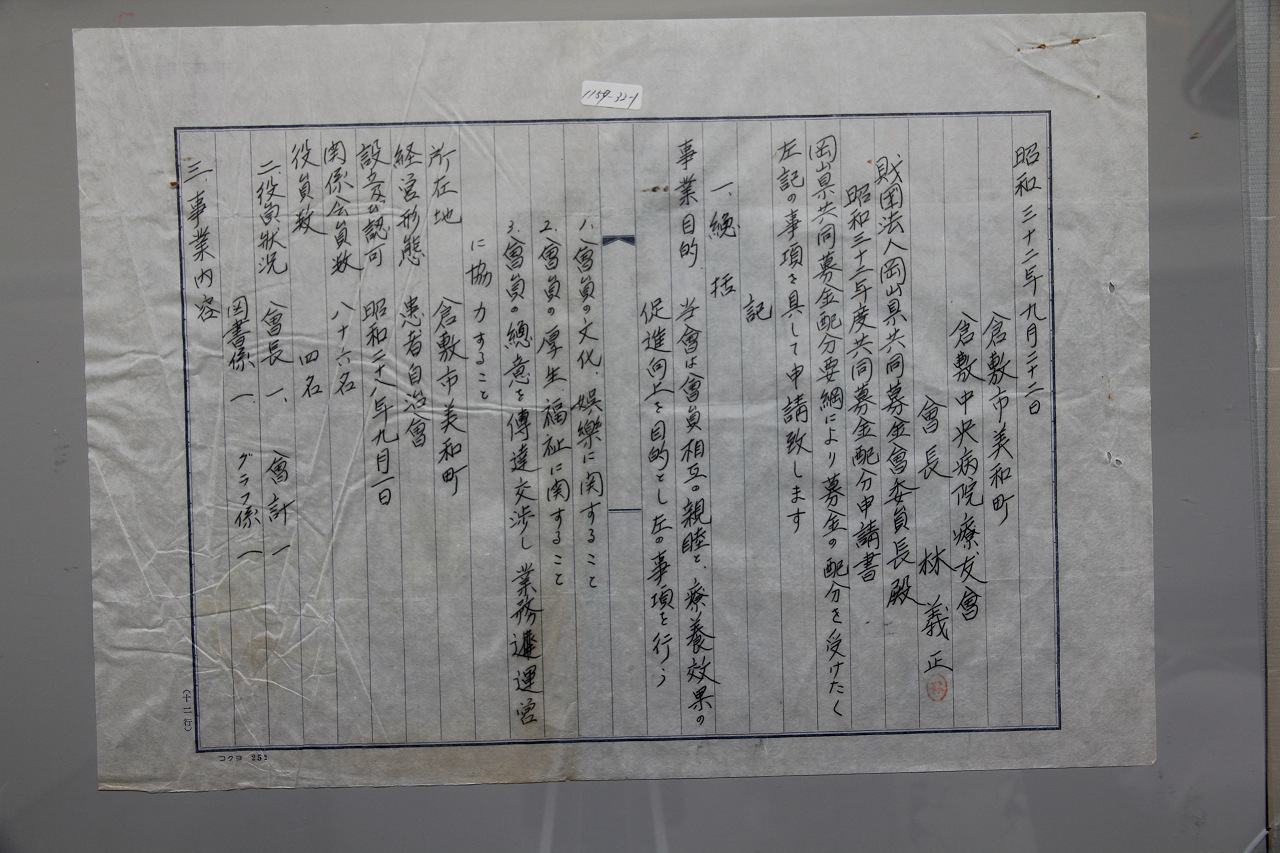 1159-32-1
昭和三十二年九月二十二日
倉敷市美和町
倉敷中央病院療友會
會長 林義正
財団法人岡山県共同募金會委員長殿
昭和三十三年度共同募金配分申請書
岡山県共同募金配分要綱により募金の配分を受けたく
左記の事項を具して申請致します
記
一、総括
事業目的 当會は會員相互の親睦と、療養效果の
促進向上を目的とし左の事項を行う
1、會員の文化、娯樂に関すること
2、會員の厚生福祉に関すること
3、會員の總意を傳達交渉し業務運営
に協力すること
所在地 倉敷市美和町
経営形態 患者自治會
設立及認可 昭和二十八年九月一日
関係会員数 八十六名
役員数 四名
二、役員状況 會長 一、 會計 一
図書係 一、 グラフ係 一
三、事業内容
(十二行)
コクヨ 252